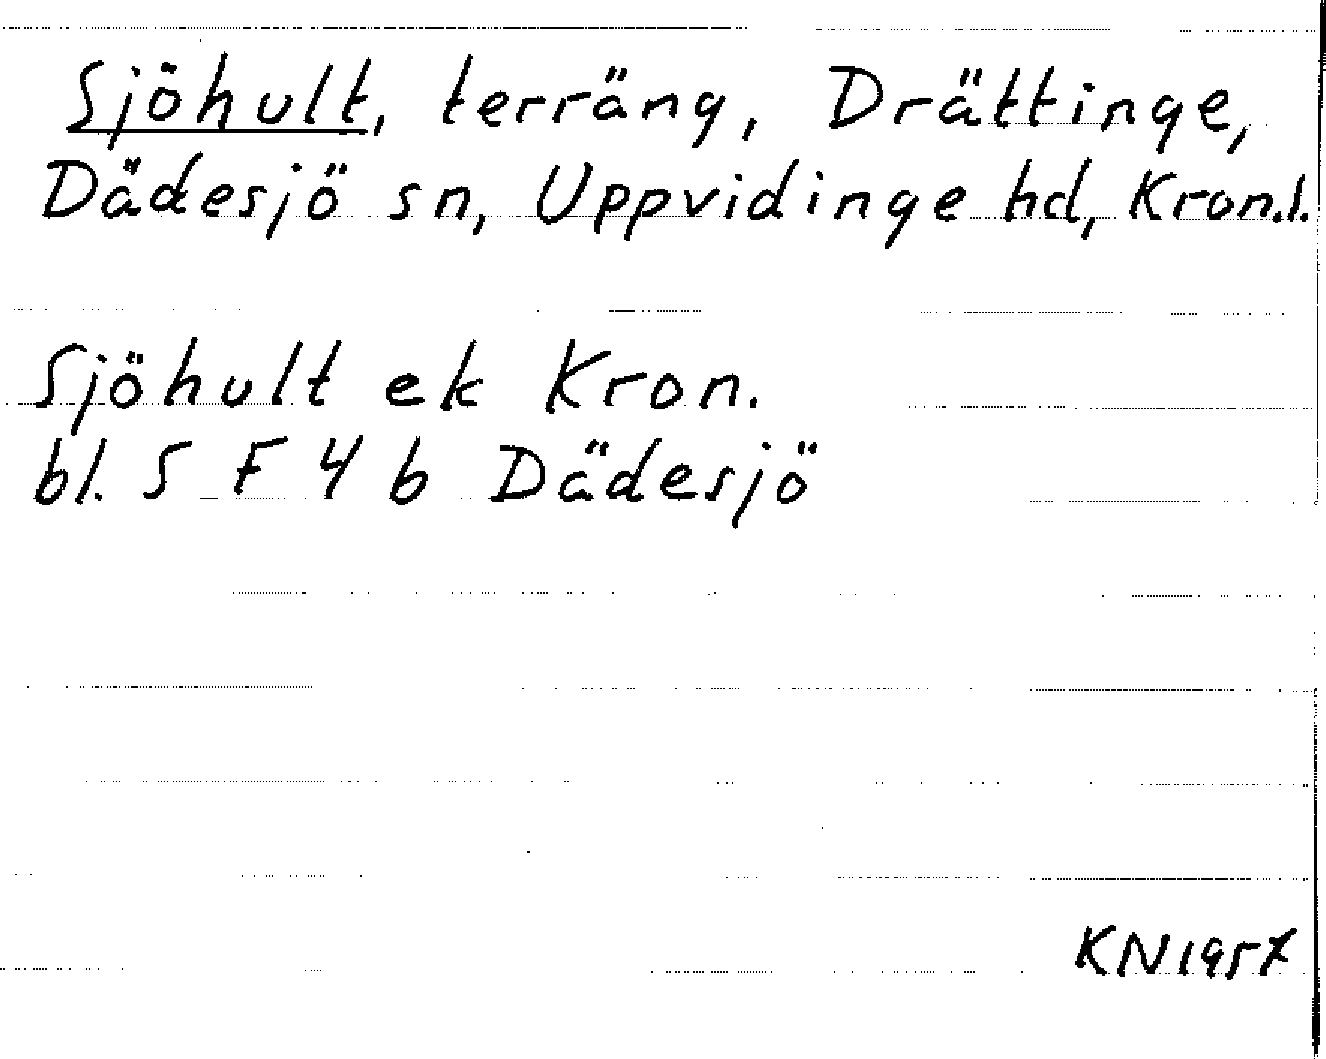 Sjöhult, terräng, Drättinge,
Dädesjö sn, Uppvidinge hd, Kron.l.
Sjöhult ek Kron.
bl. 5 F 4 b Dädesjö
KN 1957